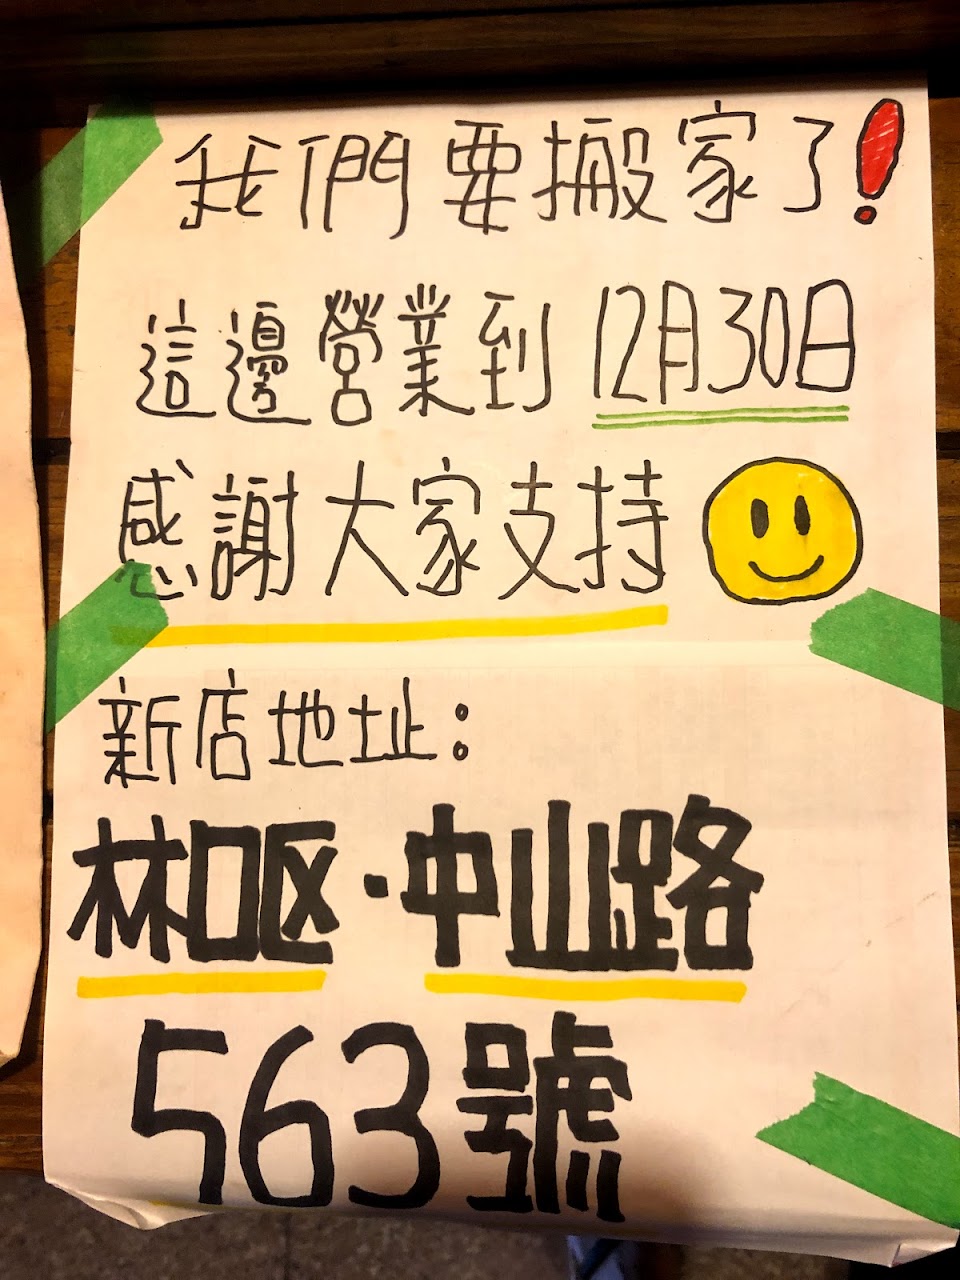 我們要搬家了!
這邊營業到12月30日
感謝大家支持
新店地址:
林口区·中山路
563號